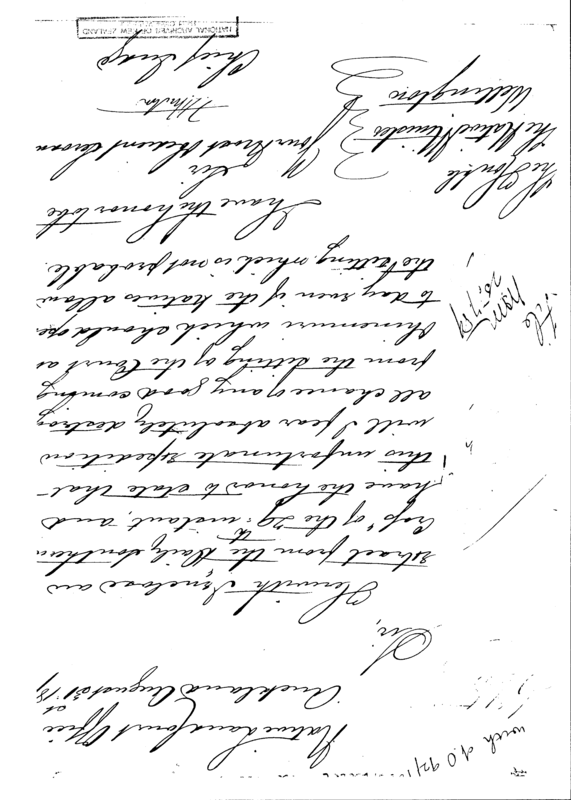 Native Land Court Office
at Auckland August 31st
Sir,
Herewith I enclose an
extract from the Daily Southern
Cross of the 29th instant, and
have the honor to state that
this unfortunate expedition
will I fear absolutely destroy
all chance of any good coming
from the sitting of the Court at
Ohinemuri which should open
to day even if the Natives allow
the sitting, which is not probable.
I have the honor to be
Sir
Your most obedient servant
Chief Judge
The Honble
The Native Minister
Wellington
File
NATIONAL ARCHIVES OF NEW ZEALAND